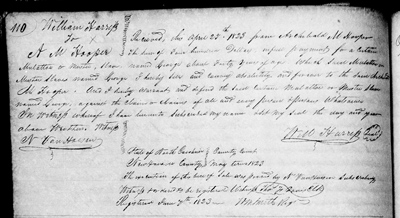 110 William Harriss
To
A M Hooper
Received, this April 25th 1823 from Archibald M Hooper
the sum of four hundred Dollars, in full payment for a certain
Mulatto or Mustee, Slave named George about Forty years of age. Which said Mulatto or
Mustee Slave named George I hereby sell and convey absolutely and forever to the said Archibald
M. Hooper. And I hereby warrant and defend the said certain Mulatto or Mustee Slave
named George, against the claim or claims of all and every person or persons Whatsoever
In Witness whereof I have hereunto subscribed my name and set my seal the day and year
above Written. Witness
Will Harriss
State of North Carolina County Court
New Hanover County May term 1823
The execution of the within was proved by
Registered June 7th 1823